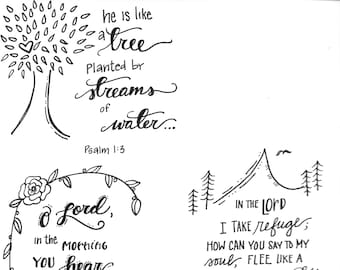 he is like
a tree
planted by
streams
of
water...
Psalm 1:3
O Lord,
in the
morning
you
hear
IN THE LORD
I TAKE refuge;
HOW CAN YOU SAY TO MY
soul, FLEE LIKE A